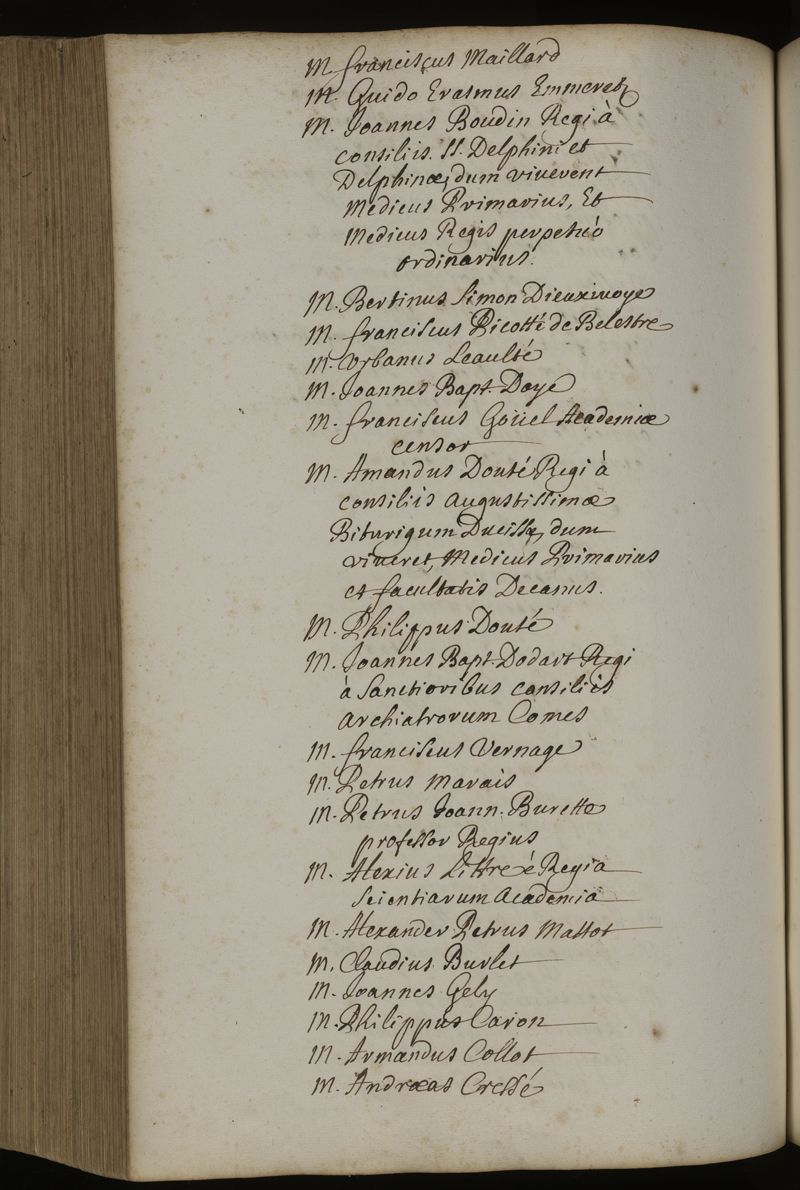 M. franciscus Maillard
M. Guido Erasmus Emmerez
M. Joannes Boudin Regi à
consiliis. SS. Delphini et
Delphinæ, dum viverent
Medicus Primarius, Et
Medicus Regis perpetuó
ordinarius.
M. Bertinus Simon Dieuxivoye
M. franciscus Picotté de Belestre
M. Urbanus Leaulté
M. Joannes Bapt. Doye
M. franciscus Goüel Academiæ
censor
M. Amandus Douté Regi à
consiliis augustissimæ
Biturigum Ducissæ, dum
viveret, Medicus Primarius
et facultatis Decanus.
M. Philippus Douté
M. Joannes Bapt. Dodart Regi
à Sanctioribus consiliis
archiatrorum Comes
M. franciscus Vernage
M. Petrus Marais
M. Petrus Joann. Burette
professor Regius
M. Alexius Littre é Regia
Scientiarum Academia
M. Alexander Petrus Mattot
M. Claudius Burlet
M. Joannes Gely
M. Philippus Caron
M. Armandus Collot
M. Andræas Cressé